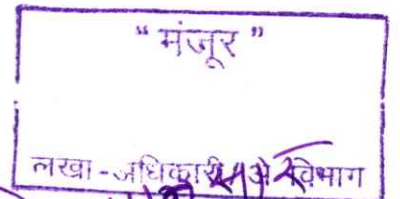 “ मंजूर ”
लखा - अधिकारी विभाग